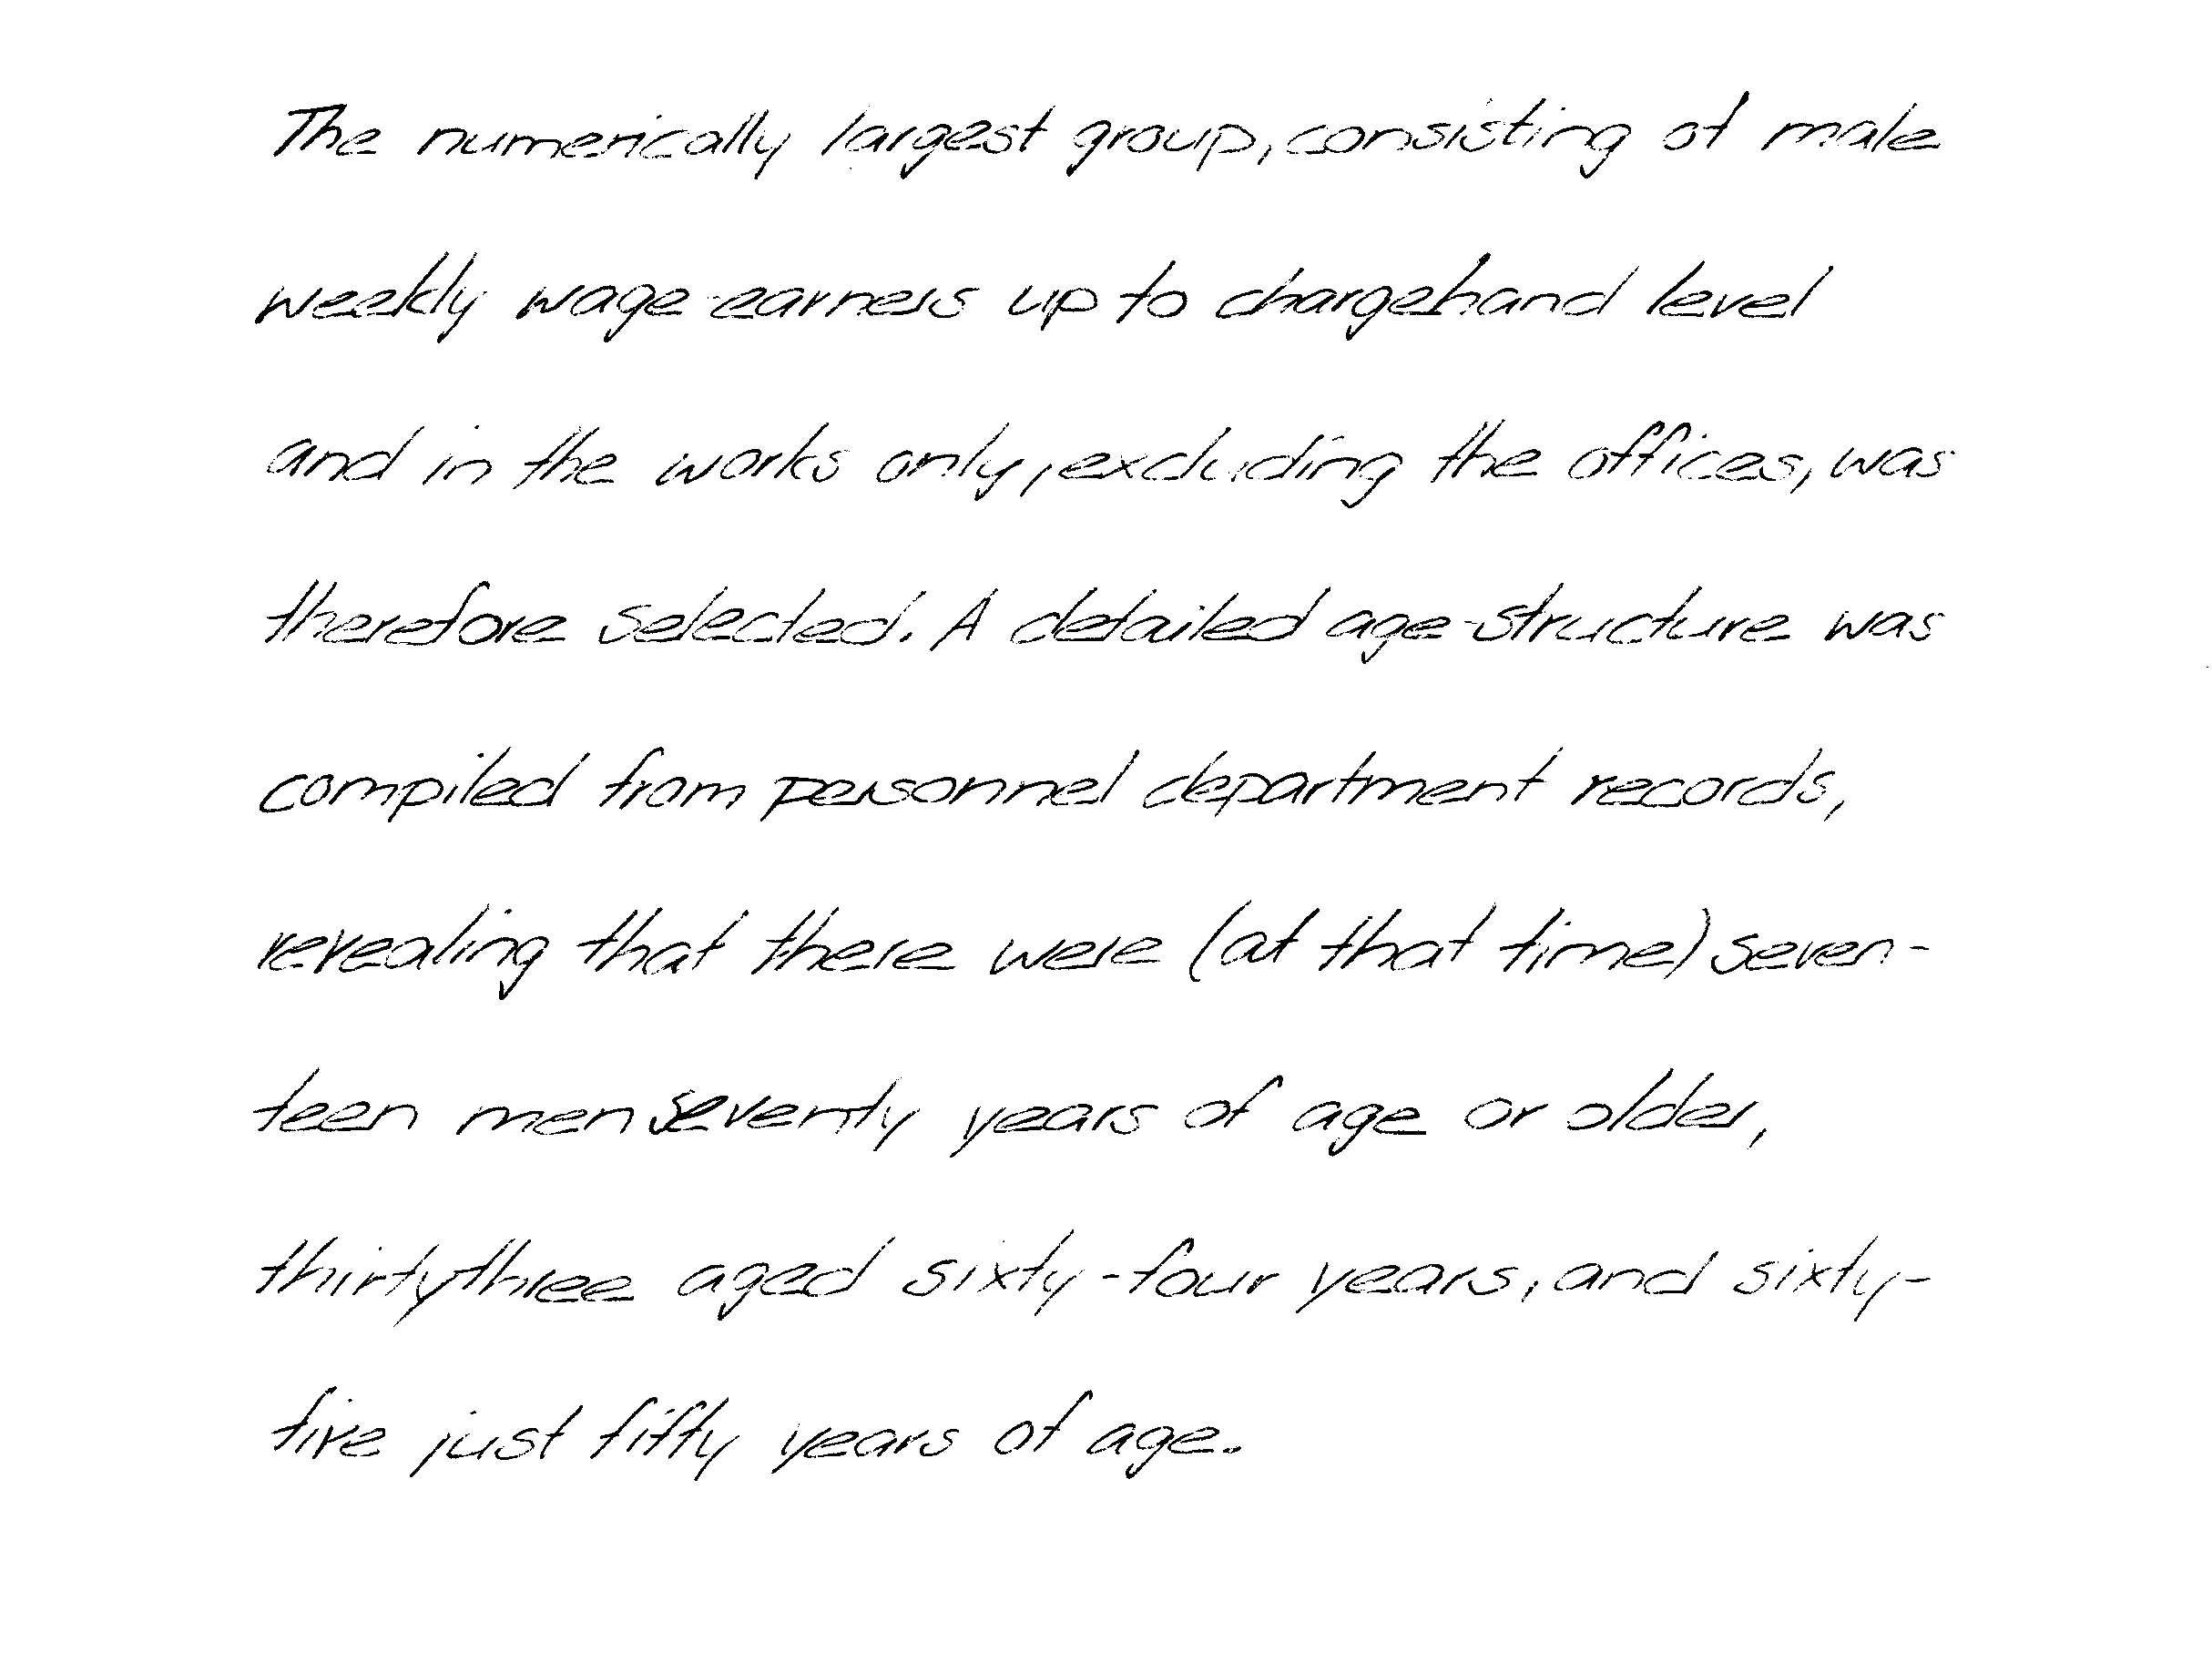 The numerically largest group, consisting of male
weekly wage-earners up to chargehand level
and in the works only, excluding the offices, was
therefore selected. A detailed age-structure was
compiled from personnel department records,
revealing that there were (at that time) seven-
teen men seventy years of age or older,
thirtythree aged sixty-four years, and sixty-
five just fifty years of age.